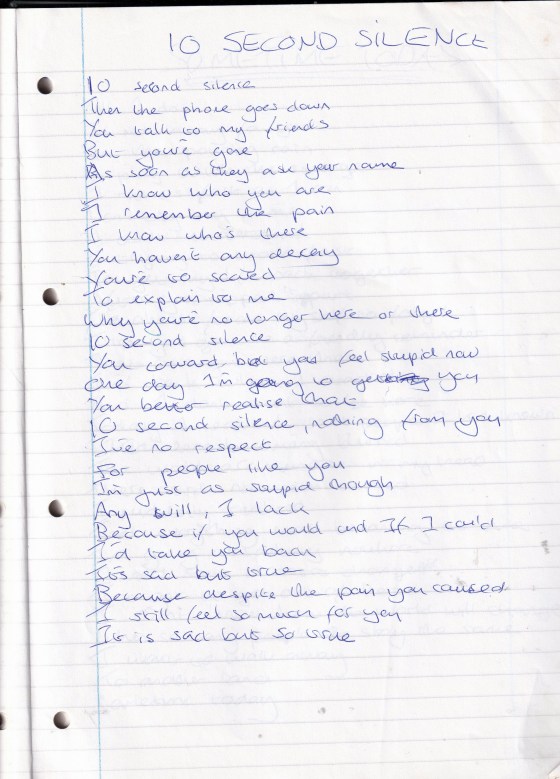 10 SECOND SILENCE
10 second silence
Then the phone goes down
You talk to my friends
But you're gone
As soon as they ask your name
I know who you are
I remember the pain
I know who's there
You haven't any decency
You're to scared
To explain to me
Why you're no longer here or there
10 second silence
You coward, bet you feel stupid now
One day I'm going to get you
You better realise that
10 second silence, nothing from you
I've no respect
For people like you
I'm just as stupid though
Any will, I lack
Because if you would and If I could
I'd take you back
It's sad but true
Because despite the pain you caused
I still feel so much for you
It is sad but so true